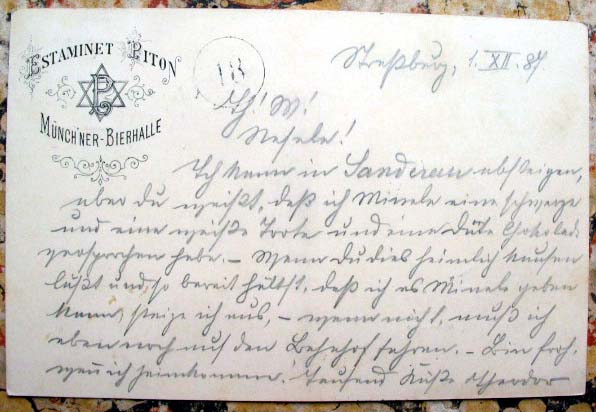 ESTAMINET PITON
MÜNCH'NER-BIERHALLE
Straßburg, 1. XII. 87.
W!
Ich kann in Sanderau absteigen,
aber du weißt, daß ich Minele eine schwarze
und eine weiße Torte und eine Düte Chokolad.
versprochen habe. – Wenn du dies heimlich kaufen
läßt und so bereit hältst, daß ich es Minele geben
kann, steige ich aus, – wenn nicht, muß ich
eben noch auf den Bahnhof fahren. – Bin froh,
wenn ich heimkomme! Tausend Küße Theodor